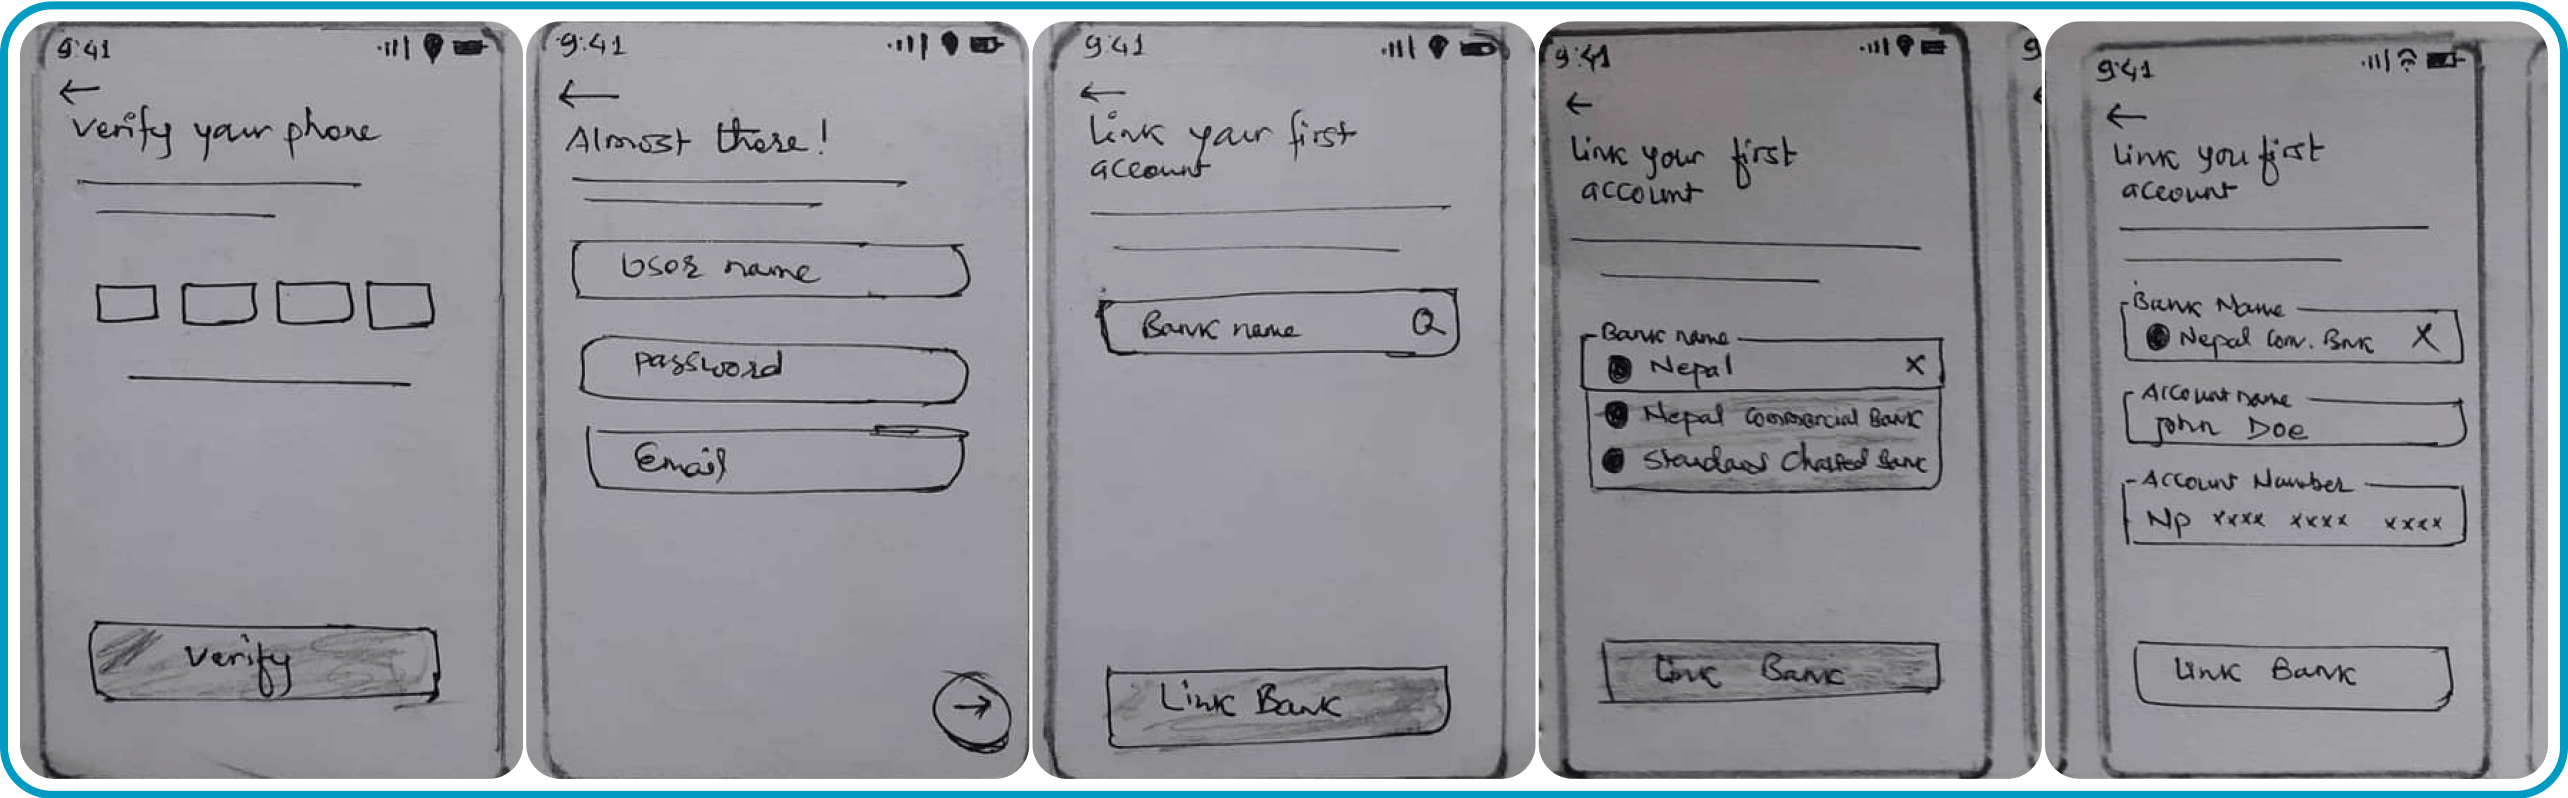 9:41
verify your phone
Verify
9:41
Almost there!
User name
password
Email
9:41
Link your first
account
Bank name
Link Bank
9:41
Link your first
account
Bank name
Nepal X
Nepal Commercial Bank
Standard Charted Bank
Link Bank
9:41
Link you first
account
Bank Name
Nepal Com. Bnk X
Account name
john Doe
Account Number
Np xxxx xxxx xxxx
Link Bank